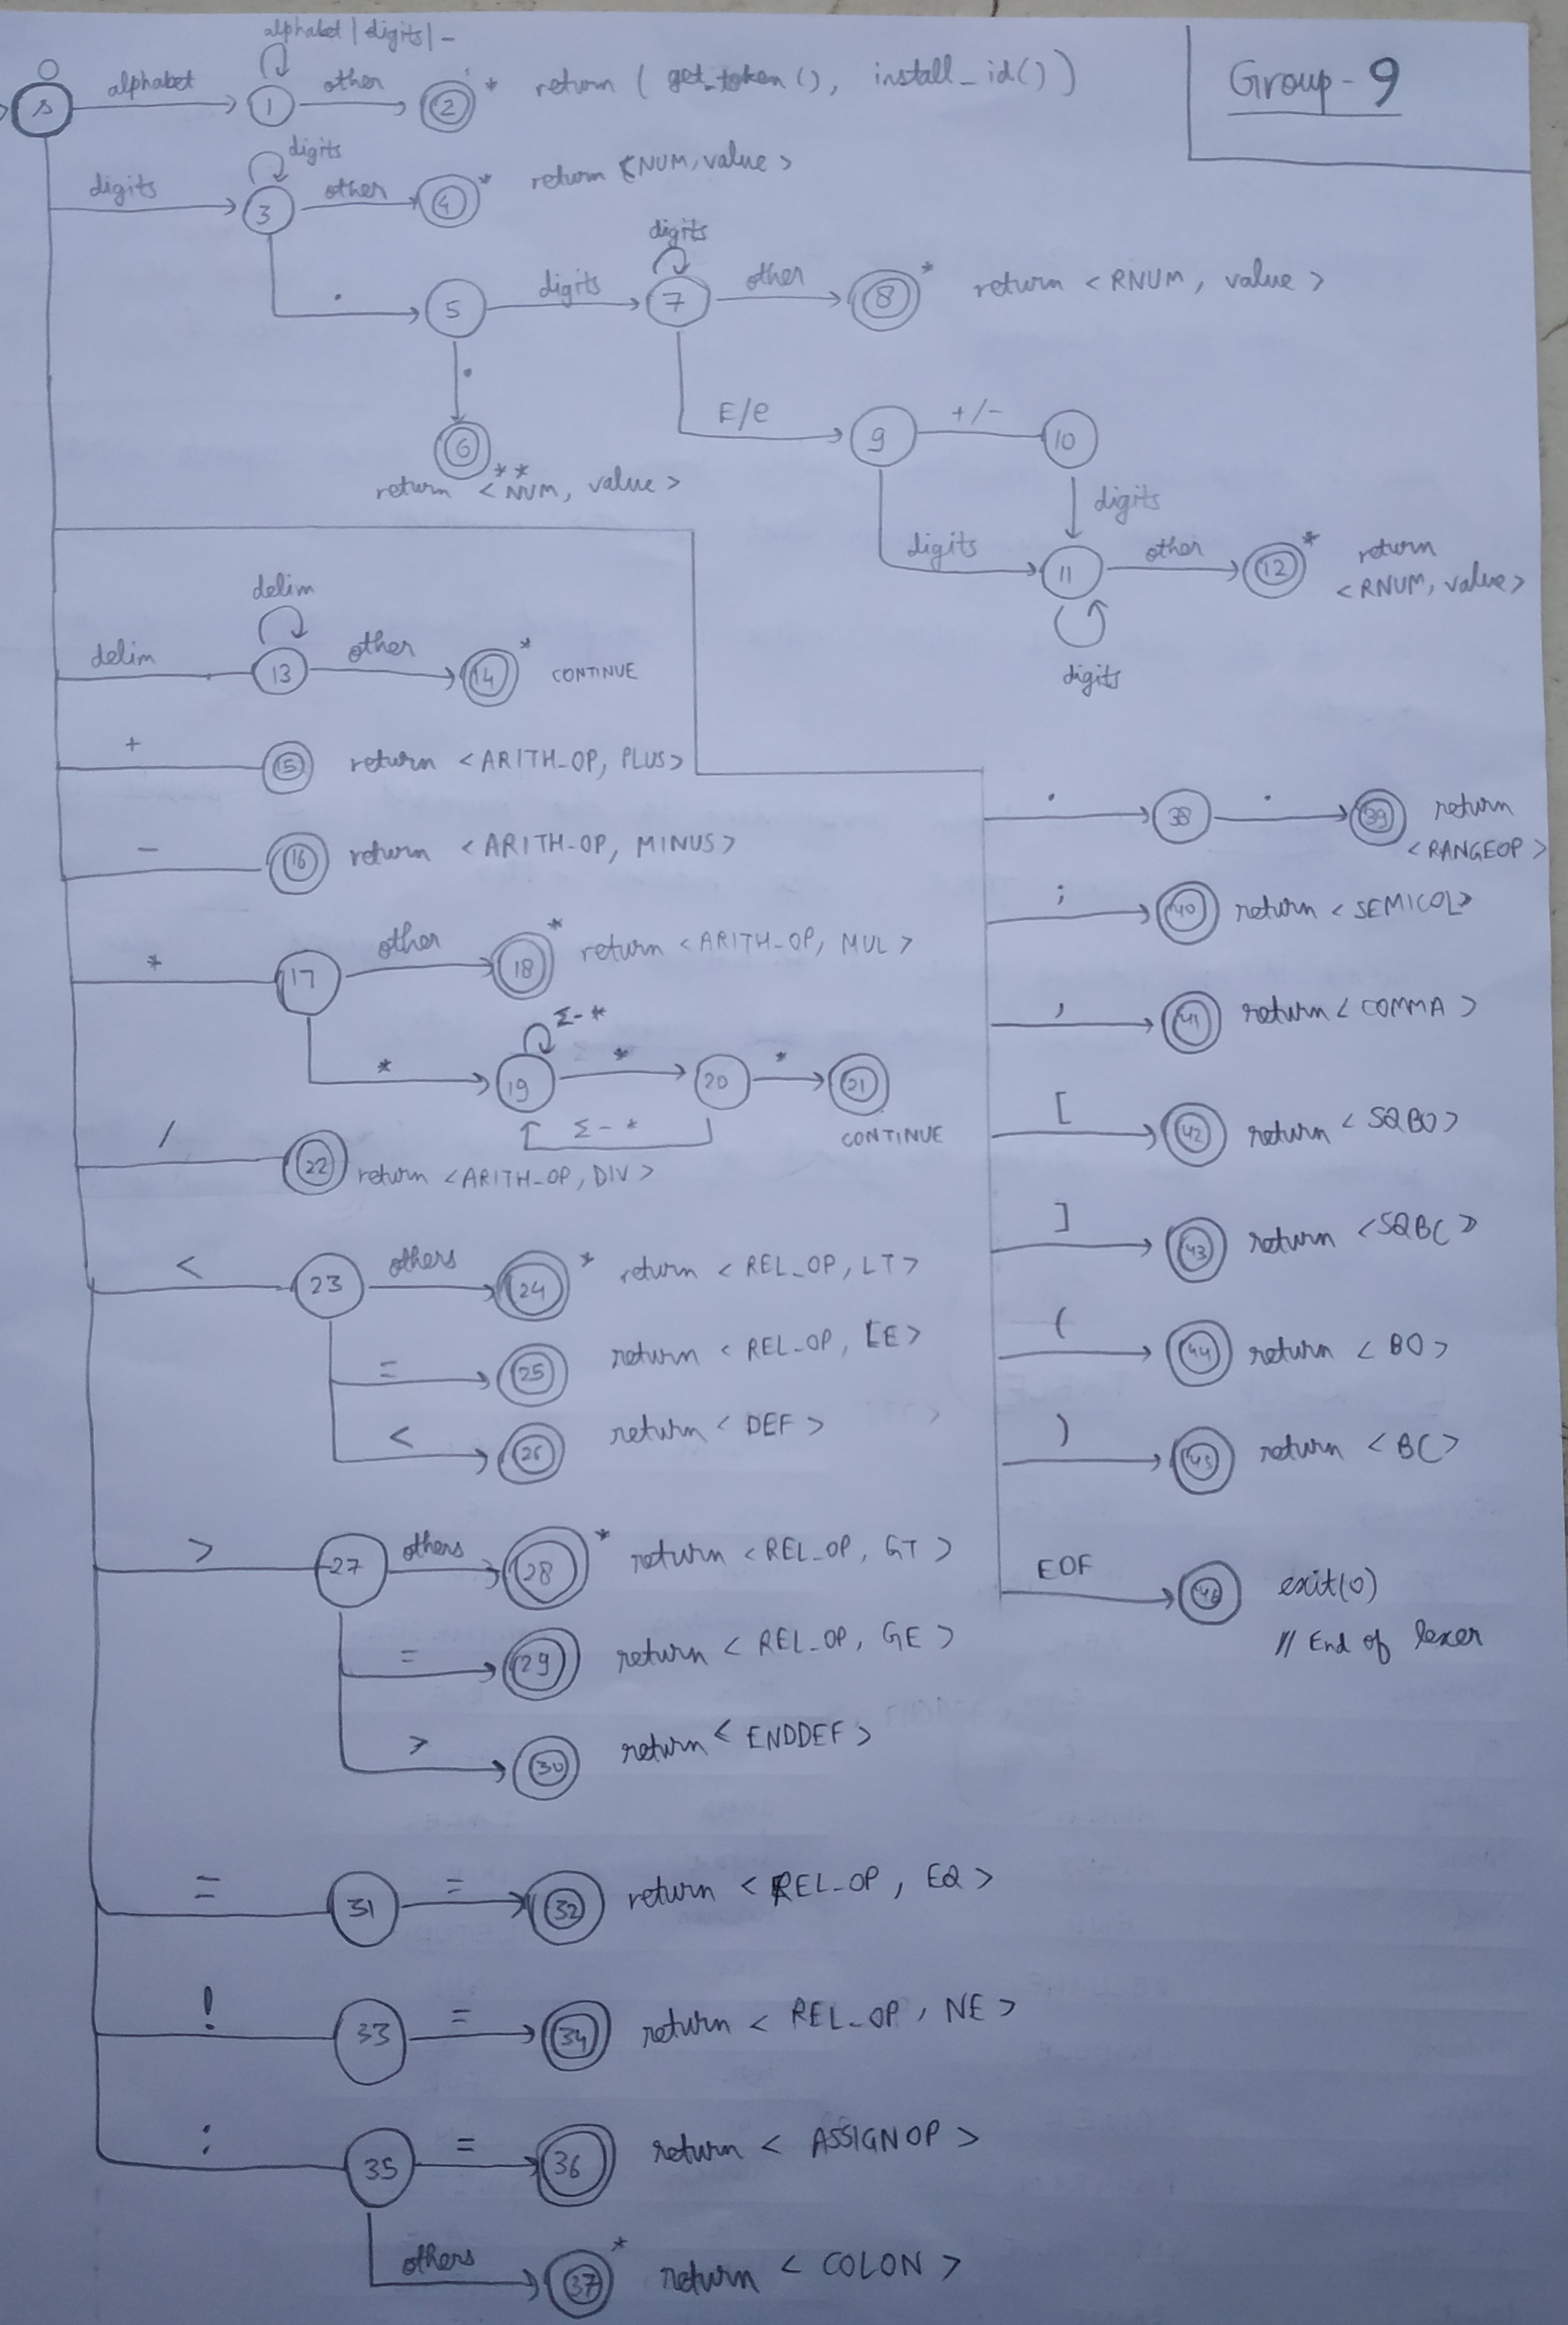 Group - 9
alphabet | digits | -
s alphabet 1 other 2 * return ( get_token (), install_id() )
digits
digits 3 other 4 * return <NUM, value >
digits
. 5 digits 7 other 8 * return < RNUM, value >
.
E/e 9 +/- 10
6 **
return < NUM, value >
digits
digits 11 other 12 * return
< RNUM, value >
digits
delim
delim 13 other 14 * CONTINUE
+ 15 return < ARITH_OP, PLUS >
- 16 return < ARITH-OP, MINUS >
* 17 other 18 * return < ARITH-OP, MUL >
Σ-*
* 19 * 20 * 21
Σ-*
CONTINUE
/ 22 return < ARITH_OP, DIV >
< 23 others 24 * return < REL_OP, LT >
= 25 return < REL-OP, LE >
< 26 return < DEF >
> 27 others 28 * return < REL_OP, GT >
= 29 return < REL_OP, GE >
> 30 return < ENDDEF >
= 31 = 32 return < REL-OP, EQ >
! 33 = 34 return < REL_OP, NE >
: 35 = 36 return < ASSIGNOP >
others 37 * return < COLON >
. 38 . 39 return
< RANGEOP >
; 40 return < SEMICOL >
, 41 return < COMMA >
[ 42 return < SQBO >
] 43 return < SQBC >
( 44 return < BO >
) 45 return < BC >
EOF 46 exit(0)
// End of lexer